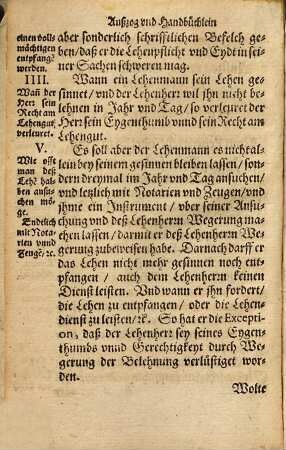 Außzog vnd Handbüchlein
einen voll-
mächtigen
entpfangẽ
werden.
aber sonderlich schrifftlichen Befelch ge-
ben/ daß er die Lehenpflicht vnd Eydt in sei-
ner Sachen schweren mag.
IIII.
Wañ der
Herr sein
Recht am
Lehengut
verleuret.
Wann ein Lehenmann sein Lehen ge-
sinnet/ vnd der Lehenherr wil jhn nicht be-
lehnen in Jahr vnd Tag/ so verleuret der
Herr sein Eygenthumb vnnd sein Recht am
Lehengut.
V.
Wie offt
man deß
Lehẽ hal-
ben ansu-
chen mö-
ge.
Endtlich
mit Nota-
rien vnnd
Zeugẽ/ ꝛc.
Es soll aber der Lehenmann es nicht al-
lein bey seinem gesinnen bleiben lassen/ son-
dern dreymal im Jahr vnd Tag ansuchen/
vnd letzlich mit Notarien vnd Zeugen/ vnd
jhme ein Instrument/ vber seiner Ansu-
chung vnd deß Lehenherrn Wegerung ma-
chen lassen/ darmit er deß Lehenherrn We-
gerung zubeweisen habe. Darnach darff er
das Lehen nicht mehr gesinnen noch ent-
pfangen/ auch dem Lehenherrn keinen
Dienst leisten. Vnd wann er jhn fordert/
die Lehen zu entpfangen/ oder die Lehen-
dienst zu leisten/ ꝛc. So hat er die Excepti-
on, daß der Lehenherr sey seines Eygen-
thumbs vnnd Gerechtigkeyt durch We-
gerung der Belehnung verlüstiget wor-
den.
Wolte